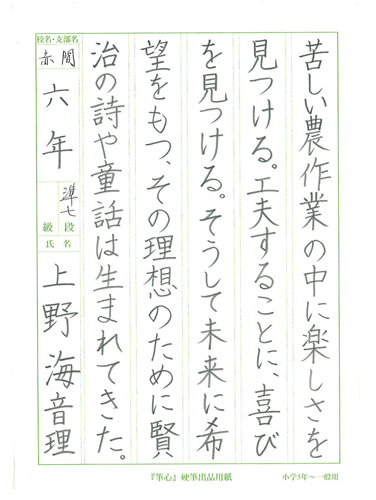 苦しい農作業の中に楽しさを
見つける。工夫することに、喜び
を見つける。そうして未来に希
望をもつ、その理想のために賢
治の詩や童話は生まれてきた。
校名・支部名
赤間
六年
準七
段
級
氏名
上野海音理
『筆心』硬筆出品用紙
小学5年〜一般用